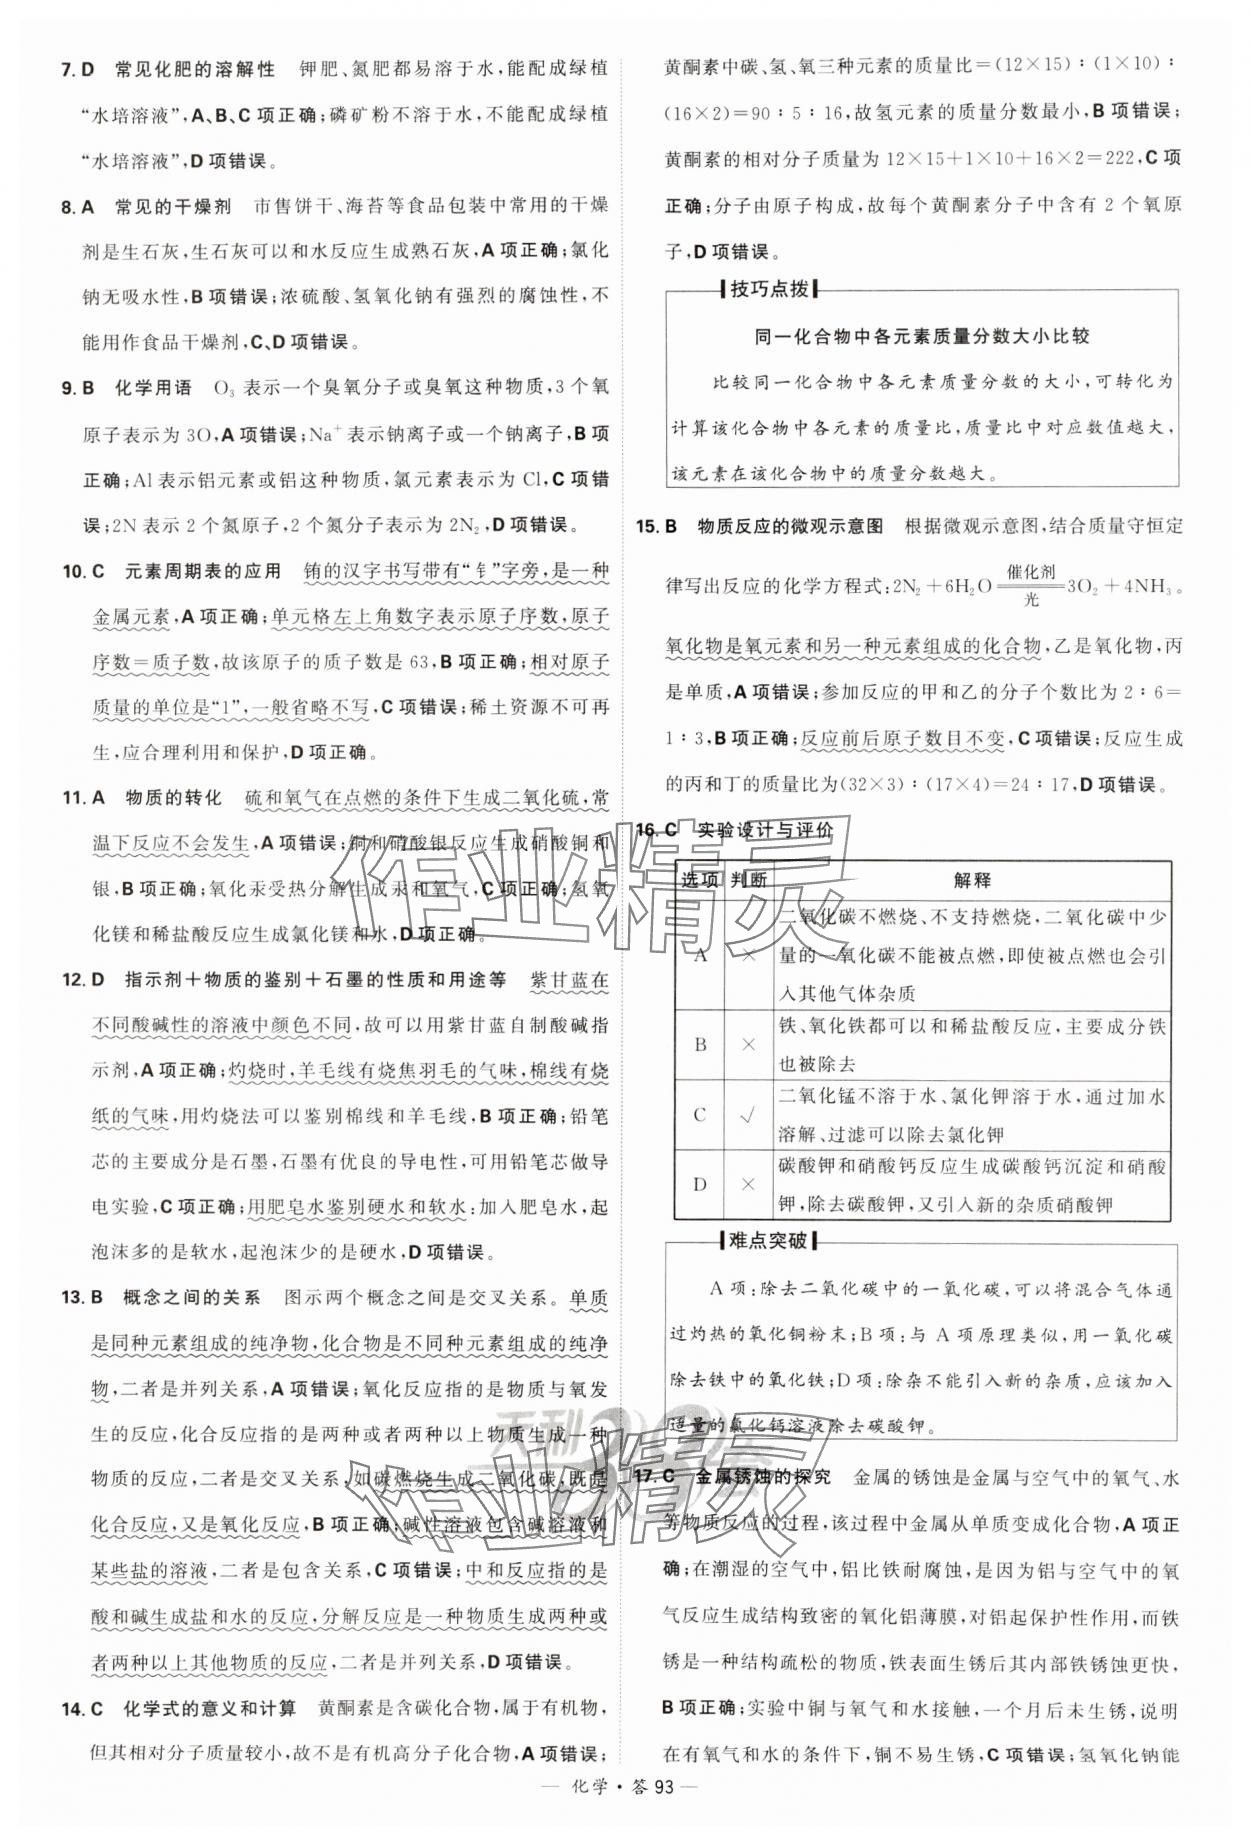 7. D 常见化肥的溶解性 钾肥、氮肥都易溶于水,能配成绿植
“水培溶液”,A、B、C 项正确;磷矿粉不溶于水,不能配成绿植
“水培溶液”,D 项错误。
8. A 常见的干燥剂 市售饼干、海苔等食品包装中常用的干燥
剂是生石灰,生石灰可以和水反应生成熟石灰,A 项正确;氯化
钠无吸水性,B 项错误;浓硫酸、氢氧化钠有强烈的腐蚀性,不
能用作食品干燥剂,C、D 项错误。
9. B 化学用语 O₃ 表示一个臭氧分子或臭氧这种物质,3 个氧
原子表示为 3O,A 项错误;Na⁺ 表示钠离子或一个钠离子,B 项
正确;Al 表示铝元素或铝这种物质,氯元素表示为 Cl,C 项错
误;2N 表示 2 个氮原子,2 个氮分子表示为 2N₂,D 项错误。
10. C 元素周期表的应用 铕的汉字书写带有“钅”字旁,是一种
金属元素,A 项正确;单元格左上角数字表示原子序数,原子
序数=质子数,故该原子的质子数是 63,B 项正确;相对原子
质量的单位是“1”,一般省略不写,C 项错误;稀土资源不可再
生,应合理利用和保护,D 项正确。
11. A 物质的转化 硫和氧气在点燃的条件下生成二氧化硫,常
温下反应不会发生,A 项错误;铜和硝酸银反应生成硝酸铜和
银,B 项正确;氧化汞受热分解生成汞和氧气,C 项正确;氢氧
化镁和稀盐酸反应生成氯化镁和水,D 项正确。
12. D 指示剂+物质的鉴别+石墨的性质和用途等 紫甘蓝在
不同酸碱性的溶液中颜色不同,故可以用紫甘蓝自制酸碱指
示剂,A 项正确;灼烧时,羊毛线有烧焦羽毛的气味,棉线有烧
纸的气味,用灼烧法可以鉴别棉线和羊毛线,B 项正确;铅笔
芯的主要成分是石墨,石墨有优良的导电性,可用铅笔芯做导
电实验,C 项正确;用肥皂水鉴别硬水和软水:加入肥皂水,起
泡沫多的是软水,起泡沫少的是硬水,D 项错误。
13. B 概念之间的关系 图示两个概念之间是交叉关系。单质
是同种元素组成的纯净物,化合物是不同种元素组成的纯净
物,二者是并列关系,A 项错误;氧化反应指的是物质与氧发
生的反应,化合反应指的是两种或者两种以上物质生成一种
物质的反应,二者是交叉关系,如碳燃烧生成二氧化碳,既是
化合反应,又是氧化反应,B 项正确;碱性溶液包含碱溶液和
某些盐的溶液,二者是包含关系,C 项错误;中和反应指的是
酸和碱生成盐和水的反应,分解反应是一种物质生成两种或
者两种以上其他物质的反应,二者是并列关系,D 项错误。
14. C 化学式的意义和计算 黄酮素是含碳化合物,属于有机物,
但其相对分子质量较小,故不是有机高分子化合物,A 项错误;
黄酮素中碳、氢、氧三种元素的质量比=(12×15)∶(1×10)∶
(16×2)=90∶5∶16,故氢元素的质量分数最小,B 项错误;
黄酮素的相对分子质量为 12×15+1×10+16×2=222,C 项
正确;分子由原子构成,故每个黄酮素分子中含有 2 个氧原
子,D 项错误。
技巧点拨
同一化合物中各元素质量分数大小比较
比较同一化合物中各元素质量分数的大小,可转化为
计算该化合物中各元素的质量比,质量比中对应数值越大,
该元素在该化合物中的质量分数越大。
15. B 物质反应的微观示意图 根据微观示意图,结合质量守恒定
律写出反应的化学方程式:2N₂+6H₂O 催化剂══光 3O₂+4NH₃。
氧化物是氧元素和另一种元素组成的化合物,乙是氧化物,丙
是单质,A 项错误;参加反应的甲和乙的分子个数比为 2∶6=
1∶3,B 项正确;反应前后原子数目不变,C 项错误;反应生成
的丙和丁的质量比为(32×3)∶(17×4)=24∶17,D 项错误。
16. C 实验设计与评价
选项 判断 解释
二氧化碳不燃烧、不支持燃烧,二氧化碳中少
A × 量的一氧化碳不能被点燃,即使被点燃也会引
入其他气体杂质
B × 铁、氧化铁都可以和稀盐酸反应,主要成分铁
也被除去
C √ 二氧化锰不溶于水、氯化钾溶于水,通过加水
溶解、过滤可以除去氯化钾
D × 碳酸钾和硝酸钙反应生成碳酸钙沉淀和硝酸
钾,除去碳酸钾,又引入新的杂质硝酸钾
难点突破
A 项:除去二氧化碳中的一氧化碳,可以将混合气体通
过灼热的氧化铜粉末;B 项:与 A 项原理类似,用一氧化碳
除去铁中的氧化铁;D 项:除杂不能引入新的杂质,应该加入
适量的氯化钙溶液除去碳酸钾。
17. C 金属锈蚀的探究 金属的锈蚀是金属与空气中的氧气、水
等物质反应的过程,该过程中金属从单质变成化合物,A 项正
确;在潮湿的空气中,铝比铁耐腐蚀,是因为铝与空气中的氧
气反应生成结构致密的氧化铝薄膜,对铝起保护性作用,而铁
锈是一种结构疏松的物质,铁表面生锈后其内部铁锈蚀更快,
B 项正确;实验中铜与氧气和水接触,一个月后未生锈,说明
在有氧气和水的条件下,铜不易生锈,C 项错误;氢氧化钠能
— 化学·答 93 —
作业精灵
天利38套
作业精灵